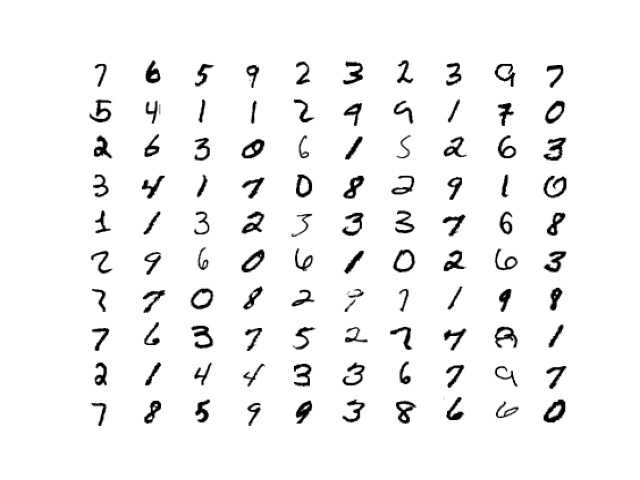 7 6 5 9 2 3 2 3 9 7
5 4 1 1 2 9 9 1 7 0
2 6 3 0 6 1 5 2 6 3
3 4 1 7 0 8 2 9 1 0
1 1 3 2 3 3 3 7 6 8
2 9 6 0 6 1 0 2 6 3
7 7 0 8 2 9 7 1 9 9
7 6 3 7 5 2 7 4 8 1
2 1 4 4 3 3 6 7 9 7
7 8 5 9 9 3 8 6 6 0